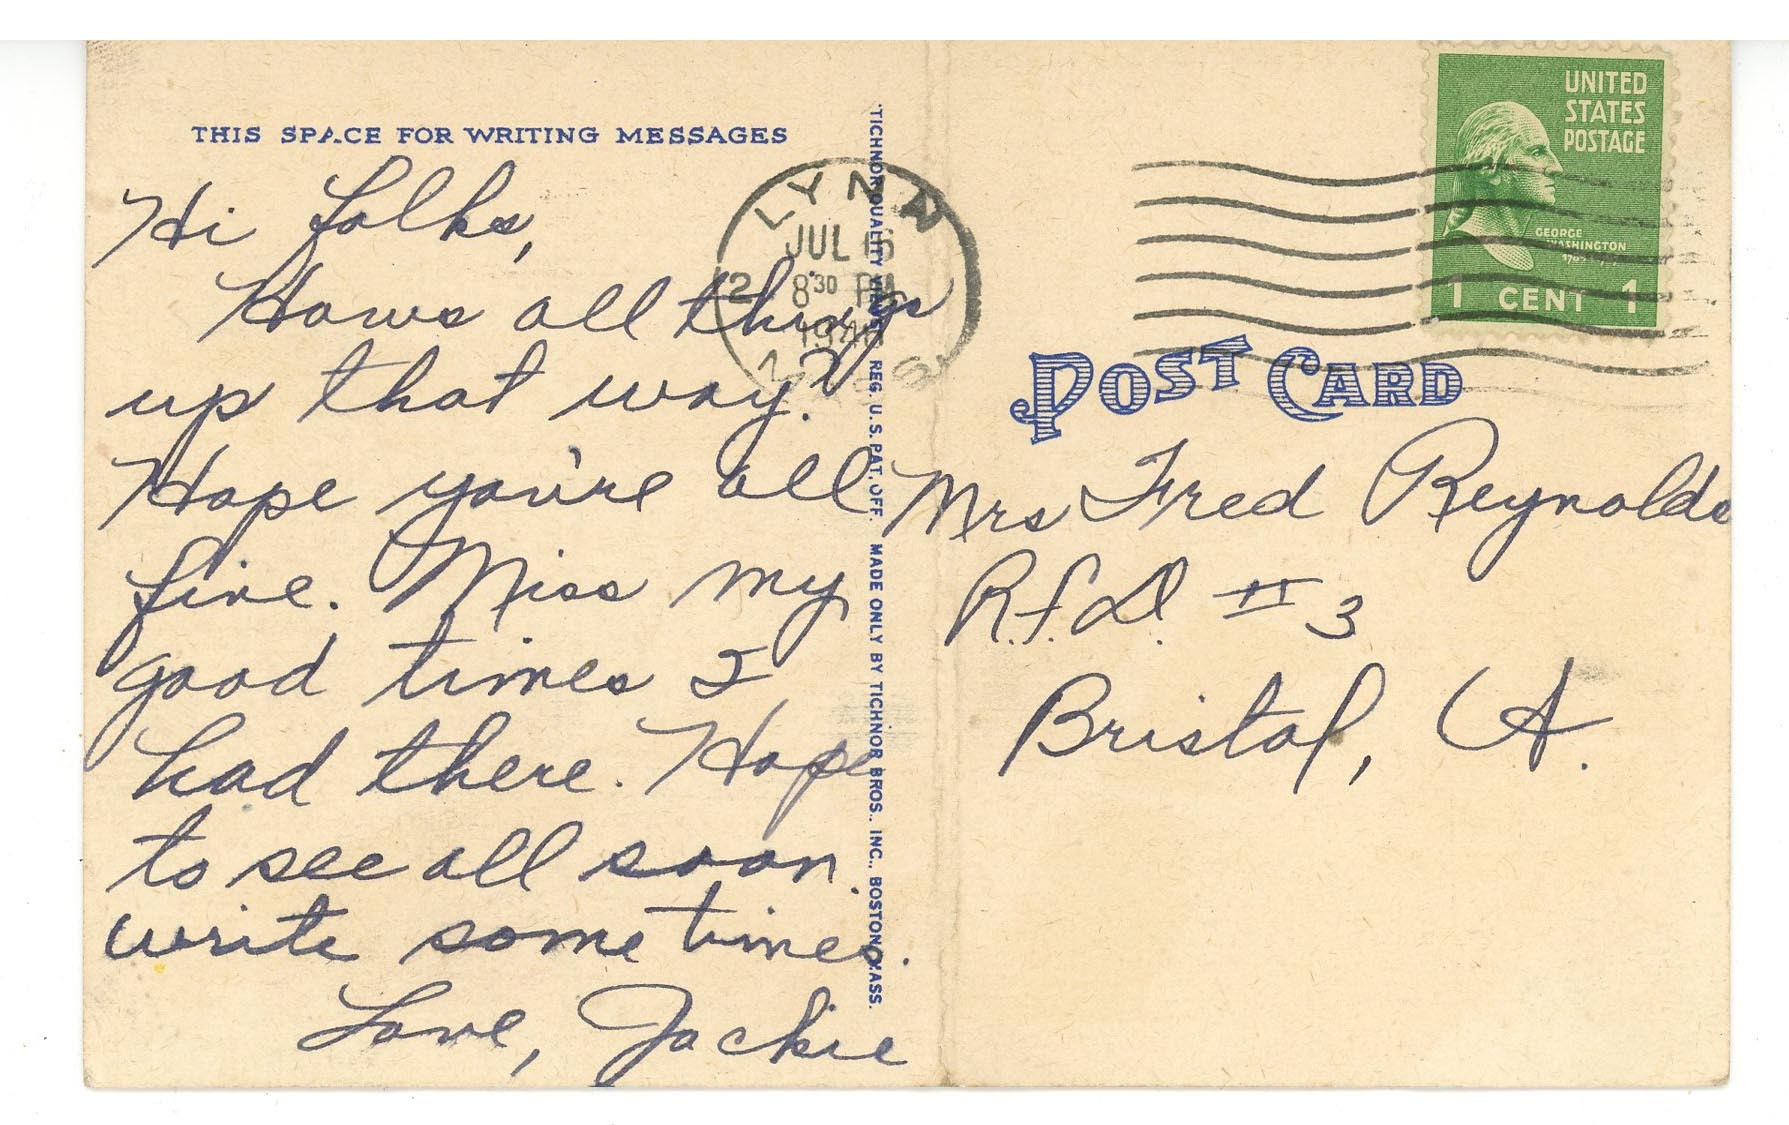 THIS SPACE FOR WRITING MESSAGES
Hi folks,
Hows all things
up that way?
Hope you're all
fine. Miss my
good times I
had there. Hope
to see all soon.
write some times.
Love, Jackie
"TICHNOR QUALITY VIEWS" REG. U. S. PAT. OFF. MADE ONLY BY TICHNOR BROS., INC., BOSTON, MASS.
LYNN
JUL 16
8 30 PM
UNITED
STATES
POSTAGE
GEORGE
WASHINGTON
1 CENT 1
POST CARD
Mrs Fred Reynolds
R.f.D. # 3
Bristol,